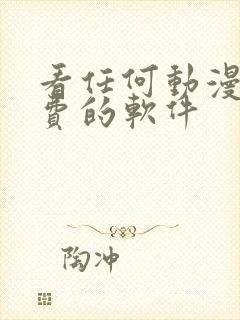 看任何動漫
費的軟件
陶冲